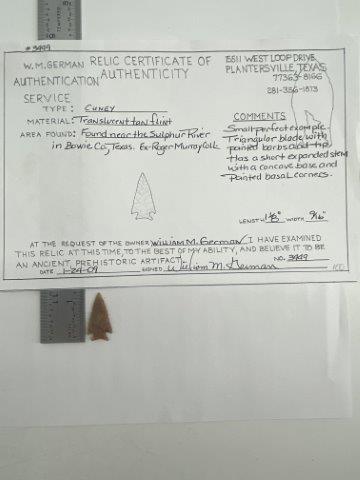 # 3449
W.M. GERMAN
AUTHENTICATION
SERVICE
RELIC CERTIFICATE OF
AUTHENTICITY
15511 WEST LOOP DRIVE
PLANTERSVILLE, TEXAS
77363-8166
281-356-1873
TYPE: CUNEY
MATERIAL: Translucent tan flint
AREA FOUND: Found near the Sulphur River
in Bowie Co, Texas. Ex-Roger Murray Coll.
COMMENTS
Small perfect example.
Triangular blade with
pointed barbs and tip.
Has a short expanded stem
with a concave base and
Pointed basal corners.
LENGTH WIDTH 9/16"
AT THE REQUEST OF THE OWNER William M. German I HAVE EXAMINED
THIS RELIC AT THIS TIME, TO THE BEST OF MY ABILITY, AND BELIEVE IT TO BE
AN ANCIENT, PREHISTORIC ARTIFACT. NO. 3449
DATE 1-24-09 SIGNED William M. German